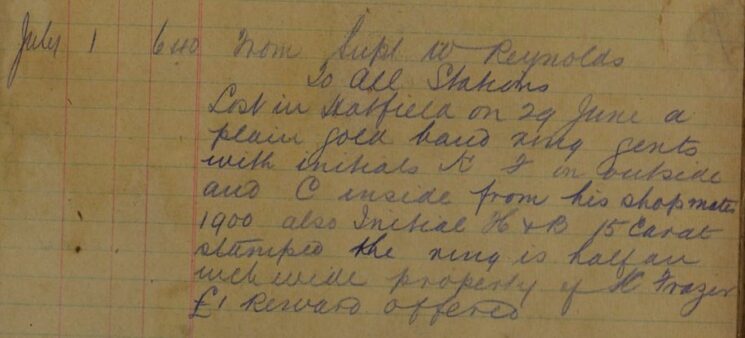 July 1 640 From Supt W Reynolds
To All Stations
Lost in Hatfield on 29 June a
plain gold band ring gents
with initials K F on outside
and C inside from his shopmates
1900 also Initial H & B 15 Carat
stamped the ring is half an
inch wide property of K Frazer
£1 Reward offered